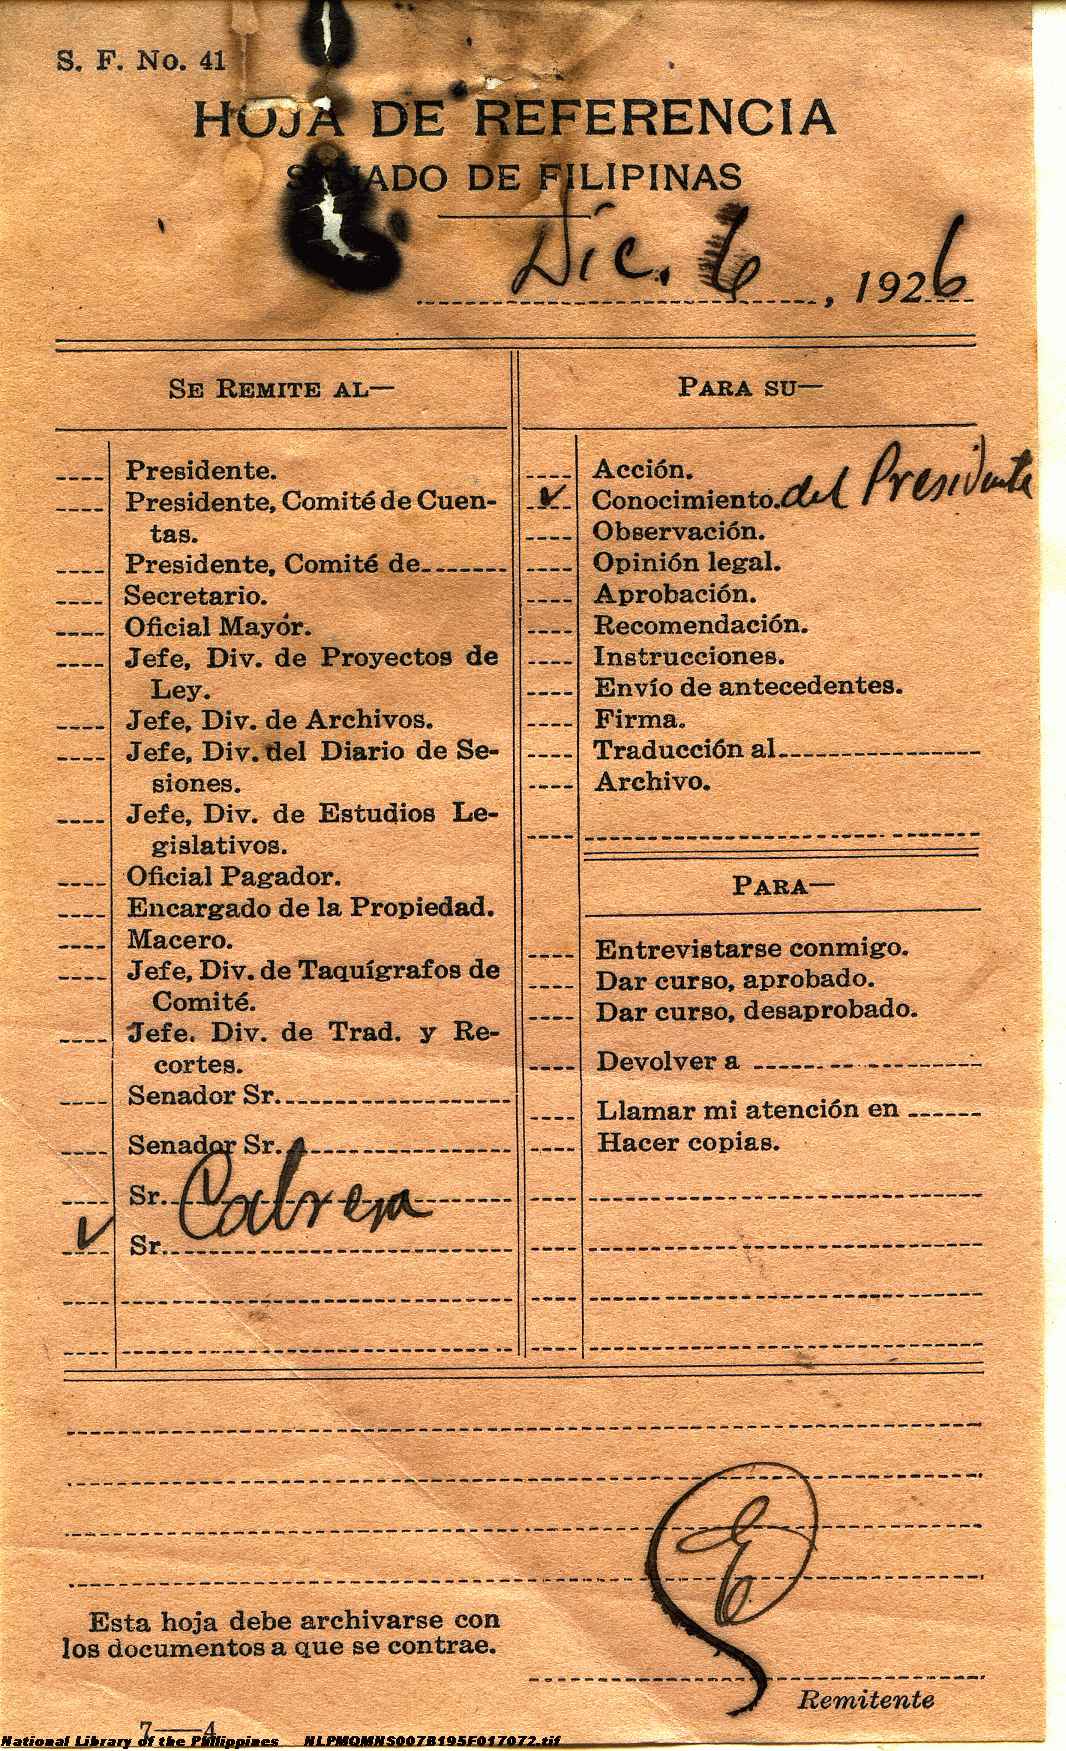 S. F. No. 41
HOJA DE REFERENCIA
SENADO DE FILIPINAS
Dic. 6, 1926
SE REMITE AL—
Presidente.
Presidente, Comité de Cuen-
tas.
Presidente, Comité de
Secretario.
Oficial Mayór.
Jefe, Div. de Proyectos de
Ley.
Jefe, Div. de Archivos.
Jefe, Div. del Diario de Se-
siones.
Jefe, Div. de Estudios Le-
gislativos.
Oficial Pagador.
Encargado de la Propiedad.
Macero.
Jefe, Div. de Taquígrafos de
Comité.
Jefe. Div. de Trad. y Re-
cortes.
Senador Sr.
Senador Sr.
Sr. Cabrera
Sr.
PARA SU—
Acción.
Conocimiento. del Presidente
Observación.
Opinión legal.
Aprobación.
Recomendación.
Instrucciones.
Envío de antecedentes.
Firma.
Traducción al
Archivo.
PARA—
Entrevistarse conmigo.
Dar curso, aprobado.
Dar curso, desaprobado.
Devolver a
Llamar mi atención en
Hacer copias.
Esta hoja debe archivarse con
los documentos a que se contrae.
Remitente
7—4
National Library of the Philippines NLPMQMNS007B195F017072.tif